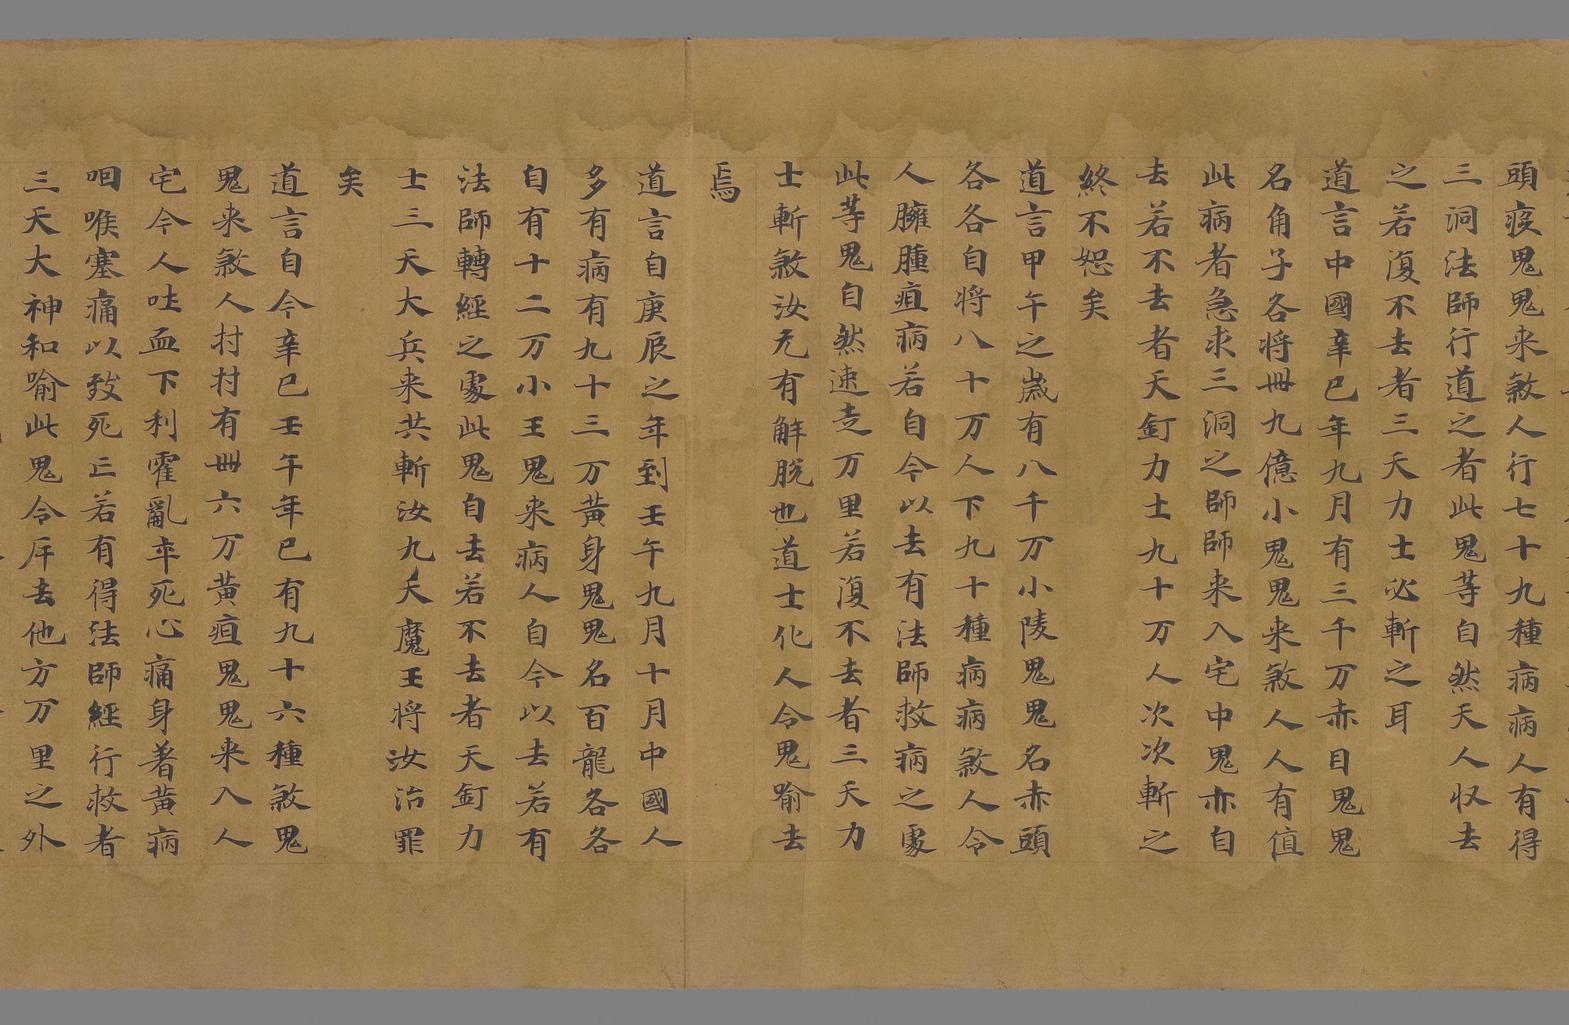 頭疫鬼鬼来煞人行七十九種病病人有得
三洞法師行道之者此鬼等自然天人収去
之若復不去者三天力士必斬之耳
道言中國辛巳年九月有三千万赤目鬼鬼
名角子各将卌九億小鬼鬼来煞人人有值
此病者急求三洞之師師来入宅中鬼亦自
去若不去者天釘力士九十万人次次斬之
終不恕矣
道言甲午之歳有八千万小陵鬼鬼名赤頭
各各自将八十万人下九十種病病煞人令
人臃腫疽病若自今以去有法師救病之處
此等鬼自然速走万里若復不去者三天力
士斬煞汝无有解脱也道士化人令鬼喻去
焉
道言自庚辰之年到壬午九月十月中國人
多有病有九十三万黃身鬼鬼名百龍各各
自有十二万小王鬼来病人自今以去若有
法師轉經之處此鬼自去若不去者天釘力
士三天大兵来共斬汝九天魔王将汝治罪
矣
道言自今辛巳壬午年巳有九十六種煞鬼
鬼来煞人村村有卌六万黄疸鬼鬼来入人
宅令人吐血下利霍亂卒死心痛身著黄病
咽喉塞痛以致死亡若有得法師經行救者
三天大神和喻此鬼令斥去他方万里之外